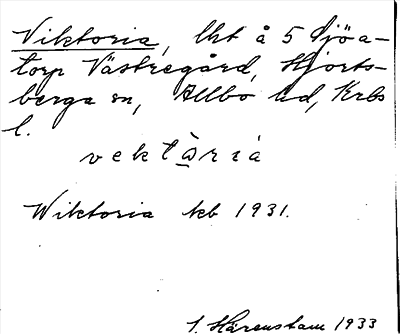 Viktoria, lht å 5 Sjöa-
torp Västregård, Hjorts-
berga sn, Allbo hd, Krbs
l.
vektὰriȧ
Wiktoria kb 1931.
I. Härenstam 1933